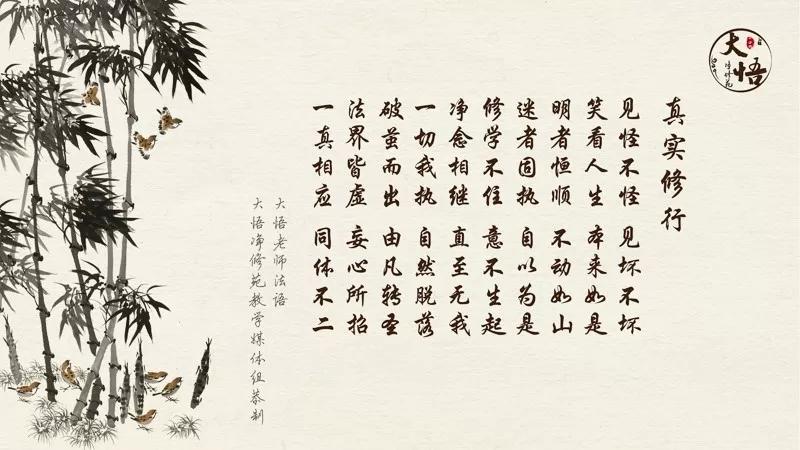 真实修行
见怪不怪 见坏不坏
笑看人生 本来如是
明者恒顺 不动如山
迷者固执 自以为是
修学不住 意不生起
净念相继 直至无我
一切我执 自然脱落
破茧而出 由凡转圣
法界皆虚 妄心所招
一真相应 同体不二
大悟老师法语
大悟净修苑教学媒体组恭制
大悟
净修苑